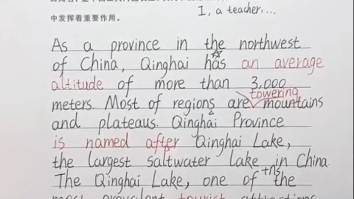 I, a teacher....
中发挥着重要作用。
As a province in the northwest
of China, Qinghai has an average
altitude of more than 3,000
towering
meters. Most of regions are mountains
and plateaus. Qinghai Province
is named after Qinghai Lake,
the largest saltwater lake in China.
The Qinghai Lake, one of the
most prevalent tourist attractions